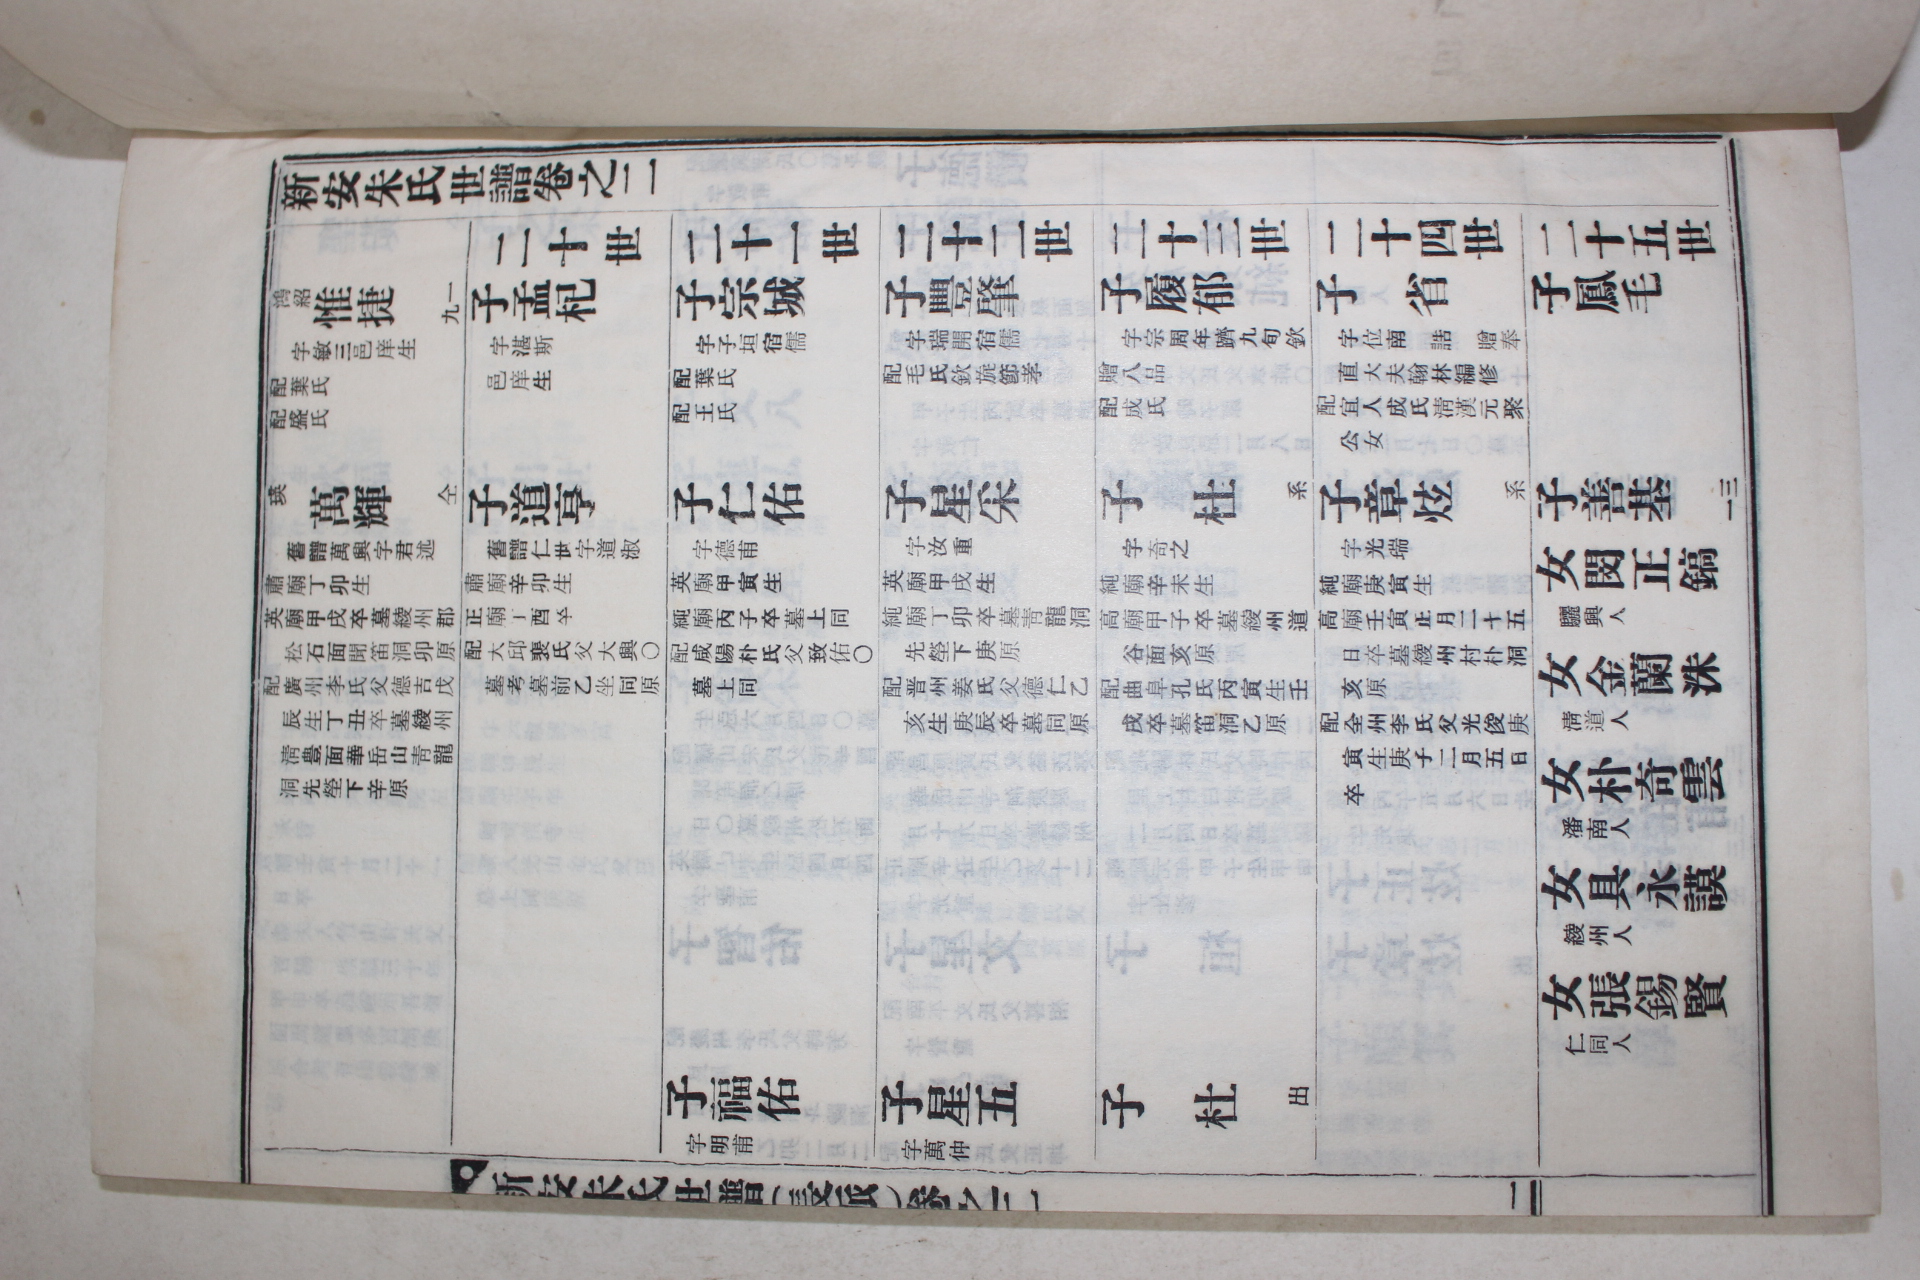 新安朱氏世譜卷之二
二十世
二十一世
二十二世
二十三世
二十四世
二十五世
鴻紹
惟捷
字敏三邑庠生
配葉氏
配盛氏
九一
子孟杞
字湛斯
邑庠生
子宗城
字子垣宿儒
配葉氏
配王氏
子豊肇
字瑞開宿儒
配毛氏欽旌節孝
子履郁
字宗周年躋九旬欽
贈八品
配成氏
子省
字位南誥贈奉
直大夫翰林編修
配宜人成氏淸漢元聚
公女
子鳳毛
瑛
萬輝
舊譜萬興字君述
肅廟丁卯生
英廟甲戌卒墓綾州郡
松石面聞笛洞卯原
配廣州李氏父德吉戊
辰生丁丑卒墓綾州
淸豊面華岳山靑龍
洞先塋下辛原
仝
子道亨
舊譜仁世字道淑
肅廟辛卯生
正廟丁酉卒
配大邱裵氏父大興〇
墓考墓前乙坐同原
子仁佑
字德甫
英廟甲寅生
純廟丙子卒墓上同
配咸陽朴氏父致佑〇
墓上同
子星采
字汝重
英廟甲戌生
純廟丁卯卒墓靑龍洞
先塋下庚原
配晋州姜氏父德仁乙
亥生庚辰卒墓同原
子杜
字奇之
純廟辛未生
高廟甲子卒墓綾州道
谷面亥原
配曲阜孔氏丙寅生壬
戌卒墓笛洞乙原
系
子章炫
字光瑞
純廟庚寅生
高廟壬寅正月二十五
日卒墓綾州村朴洞
亥原
配全州李氏父光俊庚
寅生庚子二月五日
卒
系
子善基
一三
女閔正鎬
驪興人
女金蘭洙
淸道人
女朴奇雲
潘南人
女具永謨
綾州人
女張錫賢
仁同人
子福佑
字朋甫
子星五
字萬仲
子杜
出
新安朱氏世譜(文派)卷之二
二